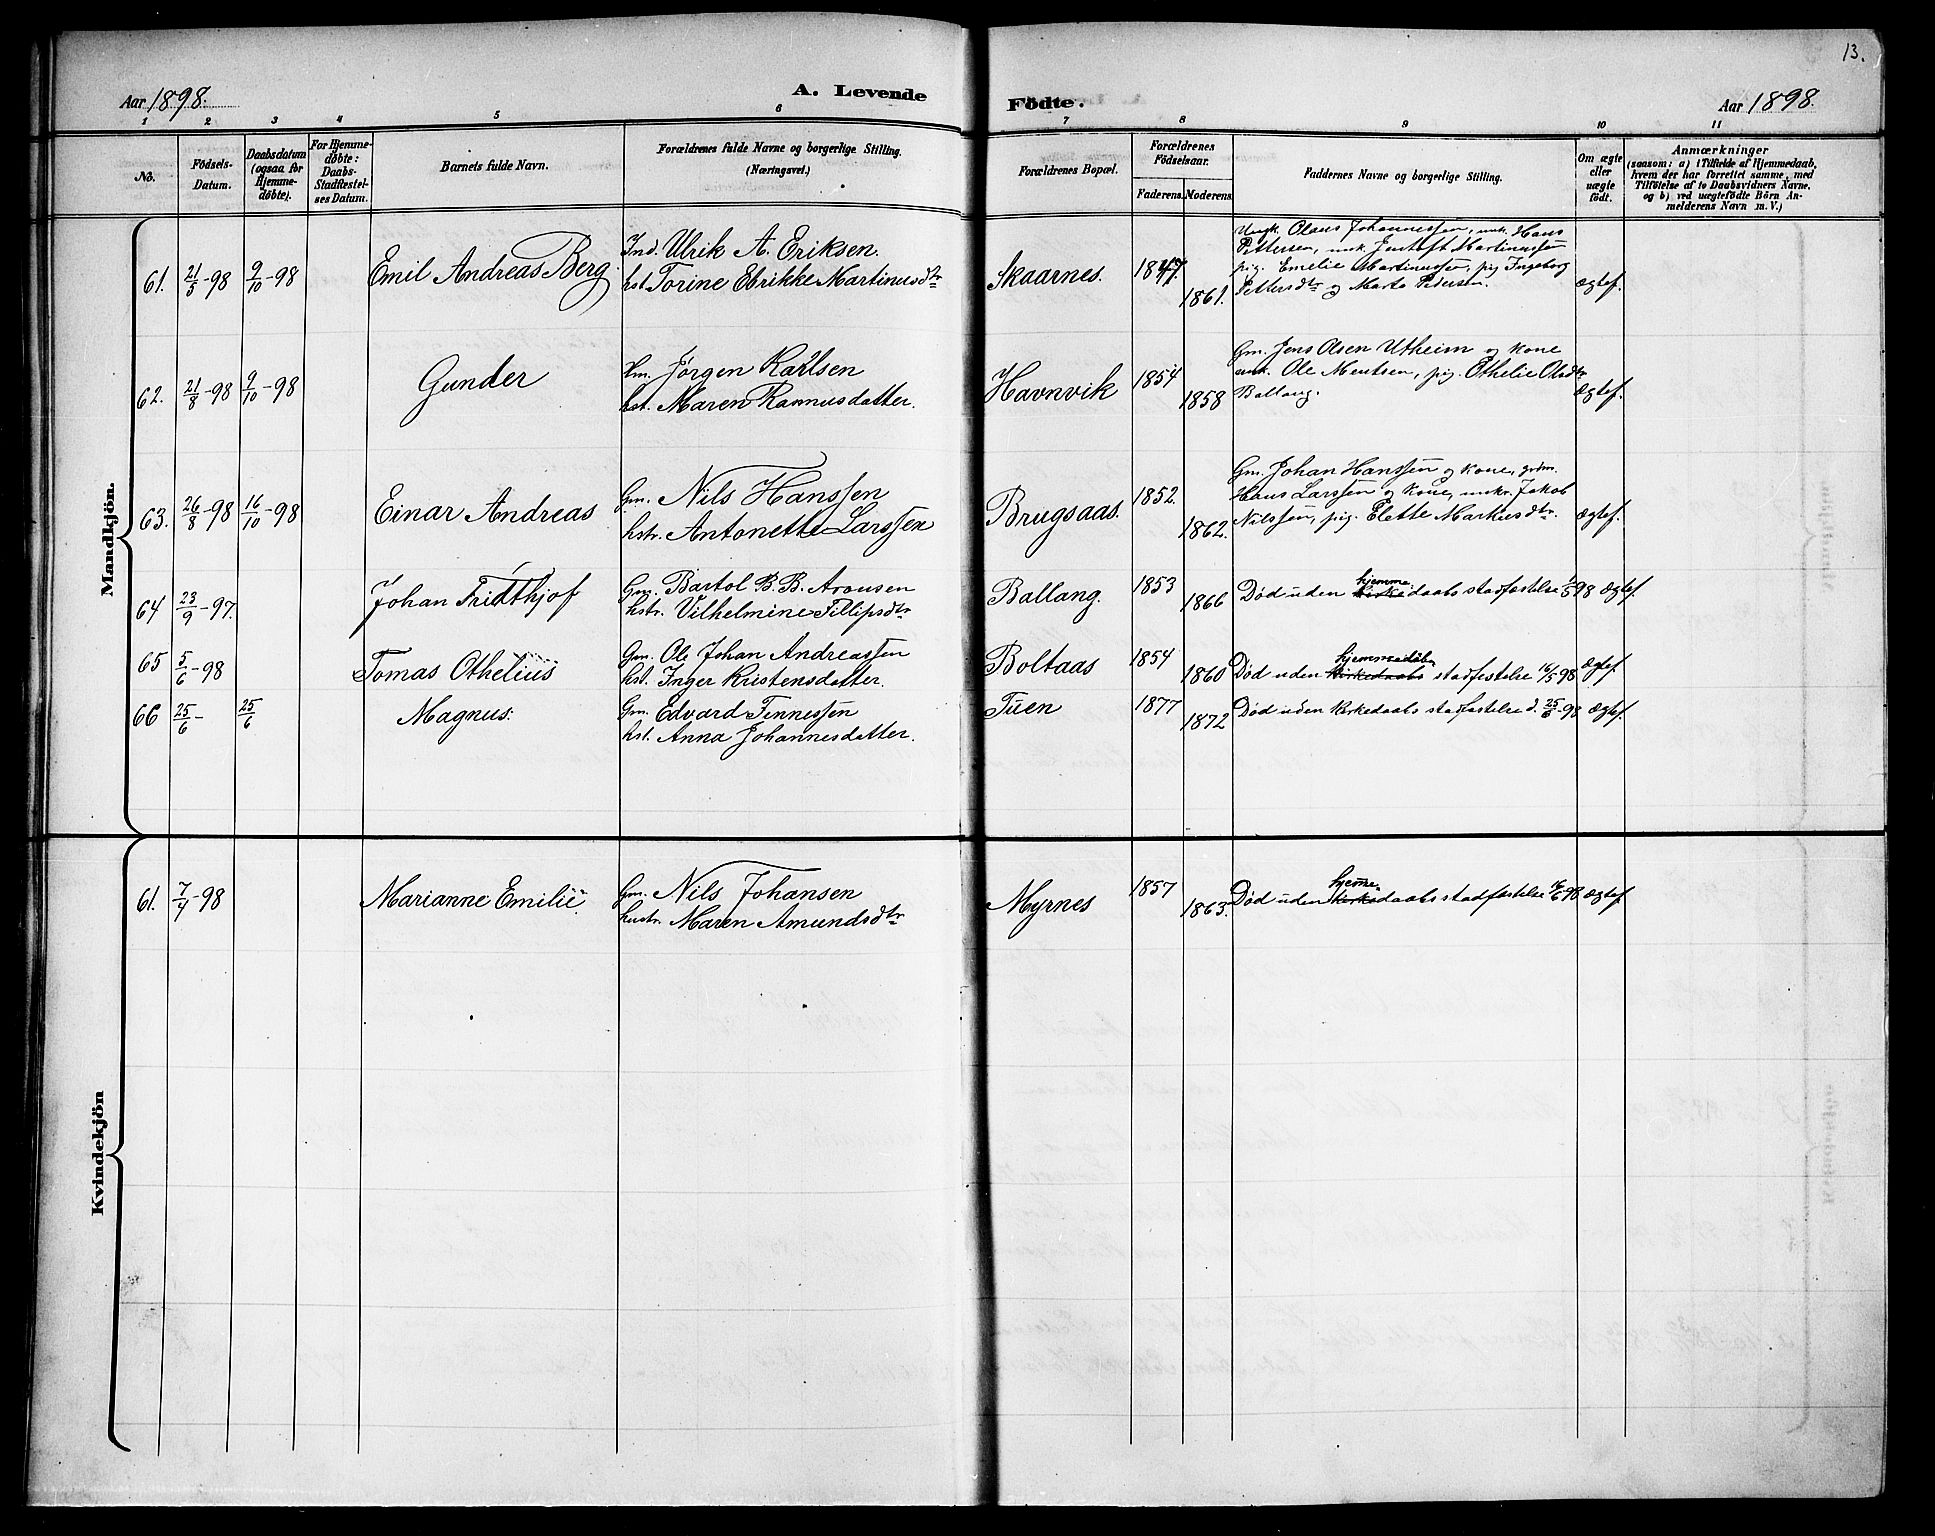 13.
Aar 1898.
A. Levende
Födte.
Aar 1898.
1 2 3 4 5 6 7 8 9 10 11
No.
Födsels-
Datum.
Daabsdatum
(ogsaa for
Hjemme-
döbte).
For Hjemme-
döbte:
Daabs-
Stadfæstel-
ses Datum.
Barnets fulde Navn.
Forældrenes fulde Navne og borgerlige Stilling.
(Næringsvei.)
Forældrenes Bopæl.
Forældrenes
Födselsaar.
Faderens. Moderens.
Faddernes Navne og borgerlige Stilling.
Om ægte
eller
uægte
født.
Anmærkninger
(saasom: a) i Tilfælde af Hjemmedaab,
hvem der har forrettet samme, med
Tilföielse af to Daabsvidners Navne,
og b) ved uægtefödte Börn An-
melderens Navn m. V.)
Mandkjön.
61. 21/5-98 9/10-98 Emil Andreas Berg.
Ind. Ulrik A. Eriksen.
hst. Torine Ebrikke Martinusdtr
Skaarnes. 1847 1861.
Ungk. Olaus Johannessen, unk. Hans
Pettersen, unk. Jentoft Martinussen
pig. Emelie Martinussen, pig Ingeborg
Pettersdtr og Marta Pedersen.
Ægtef.
62. 21/8-98 9/10-98 Gunder
Jørgen Karlsen
hst. Maren Rasmusdatter.
Havnvik 1854 1858
Gm. Jens Olsen Utheim og kone
unk. Ole Mentsen, pig. Othelie Olsdtr
Ballang.
Ægtef.
63. 26/8-98 16/10-98 Einar Andreas
Gm. Nils Hanssen
hstr. Antonette Larssen
Brugsaas. 1852. 1862.
Gm. Johan Hanssen og kone, grdm.
Hans Larssen og kone, unkr. Jakob
Nilssen, pig. Elette Markusdtr.
Ægtef.
64 23/9-97. Johan Fridthjof
Gm. Bartol B. B. Aronsen
hstr. Vilhelmine Fillipsdtr
Ballang. 1853 1866
hjemme
Død uden kirkedaabs stadfæstelse 98 Ægtef.
65 5/6-98 Tomas Othelius
Gm. Ole Johan Andreassen
hst. Inger Kristensdatter.
Boltaas 1854 1860
hjemmedåb
Død uden kirkedaabs stadfestelse 16/5 98 Ægtef.
66 25/6- 25/6 Magnus.
Gm. Edvard Finnessen
hst. Anna Johannesdatter.
Tuen 1877 1872
Død uden Kirkedaabs stadfæstelse d. 25/6-98 Ægtef.
Kvindekjön
61. 7/4-98 Marianne Emilie
Gm. Nils Johansen
hustr. Maren Amundsdtr
Myrnes 1857 1863.
hjeme
Død uden kirkedaabs stadfæstelse 16/6 98 Ægtef.